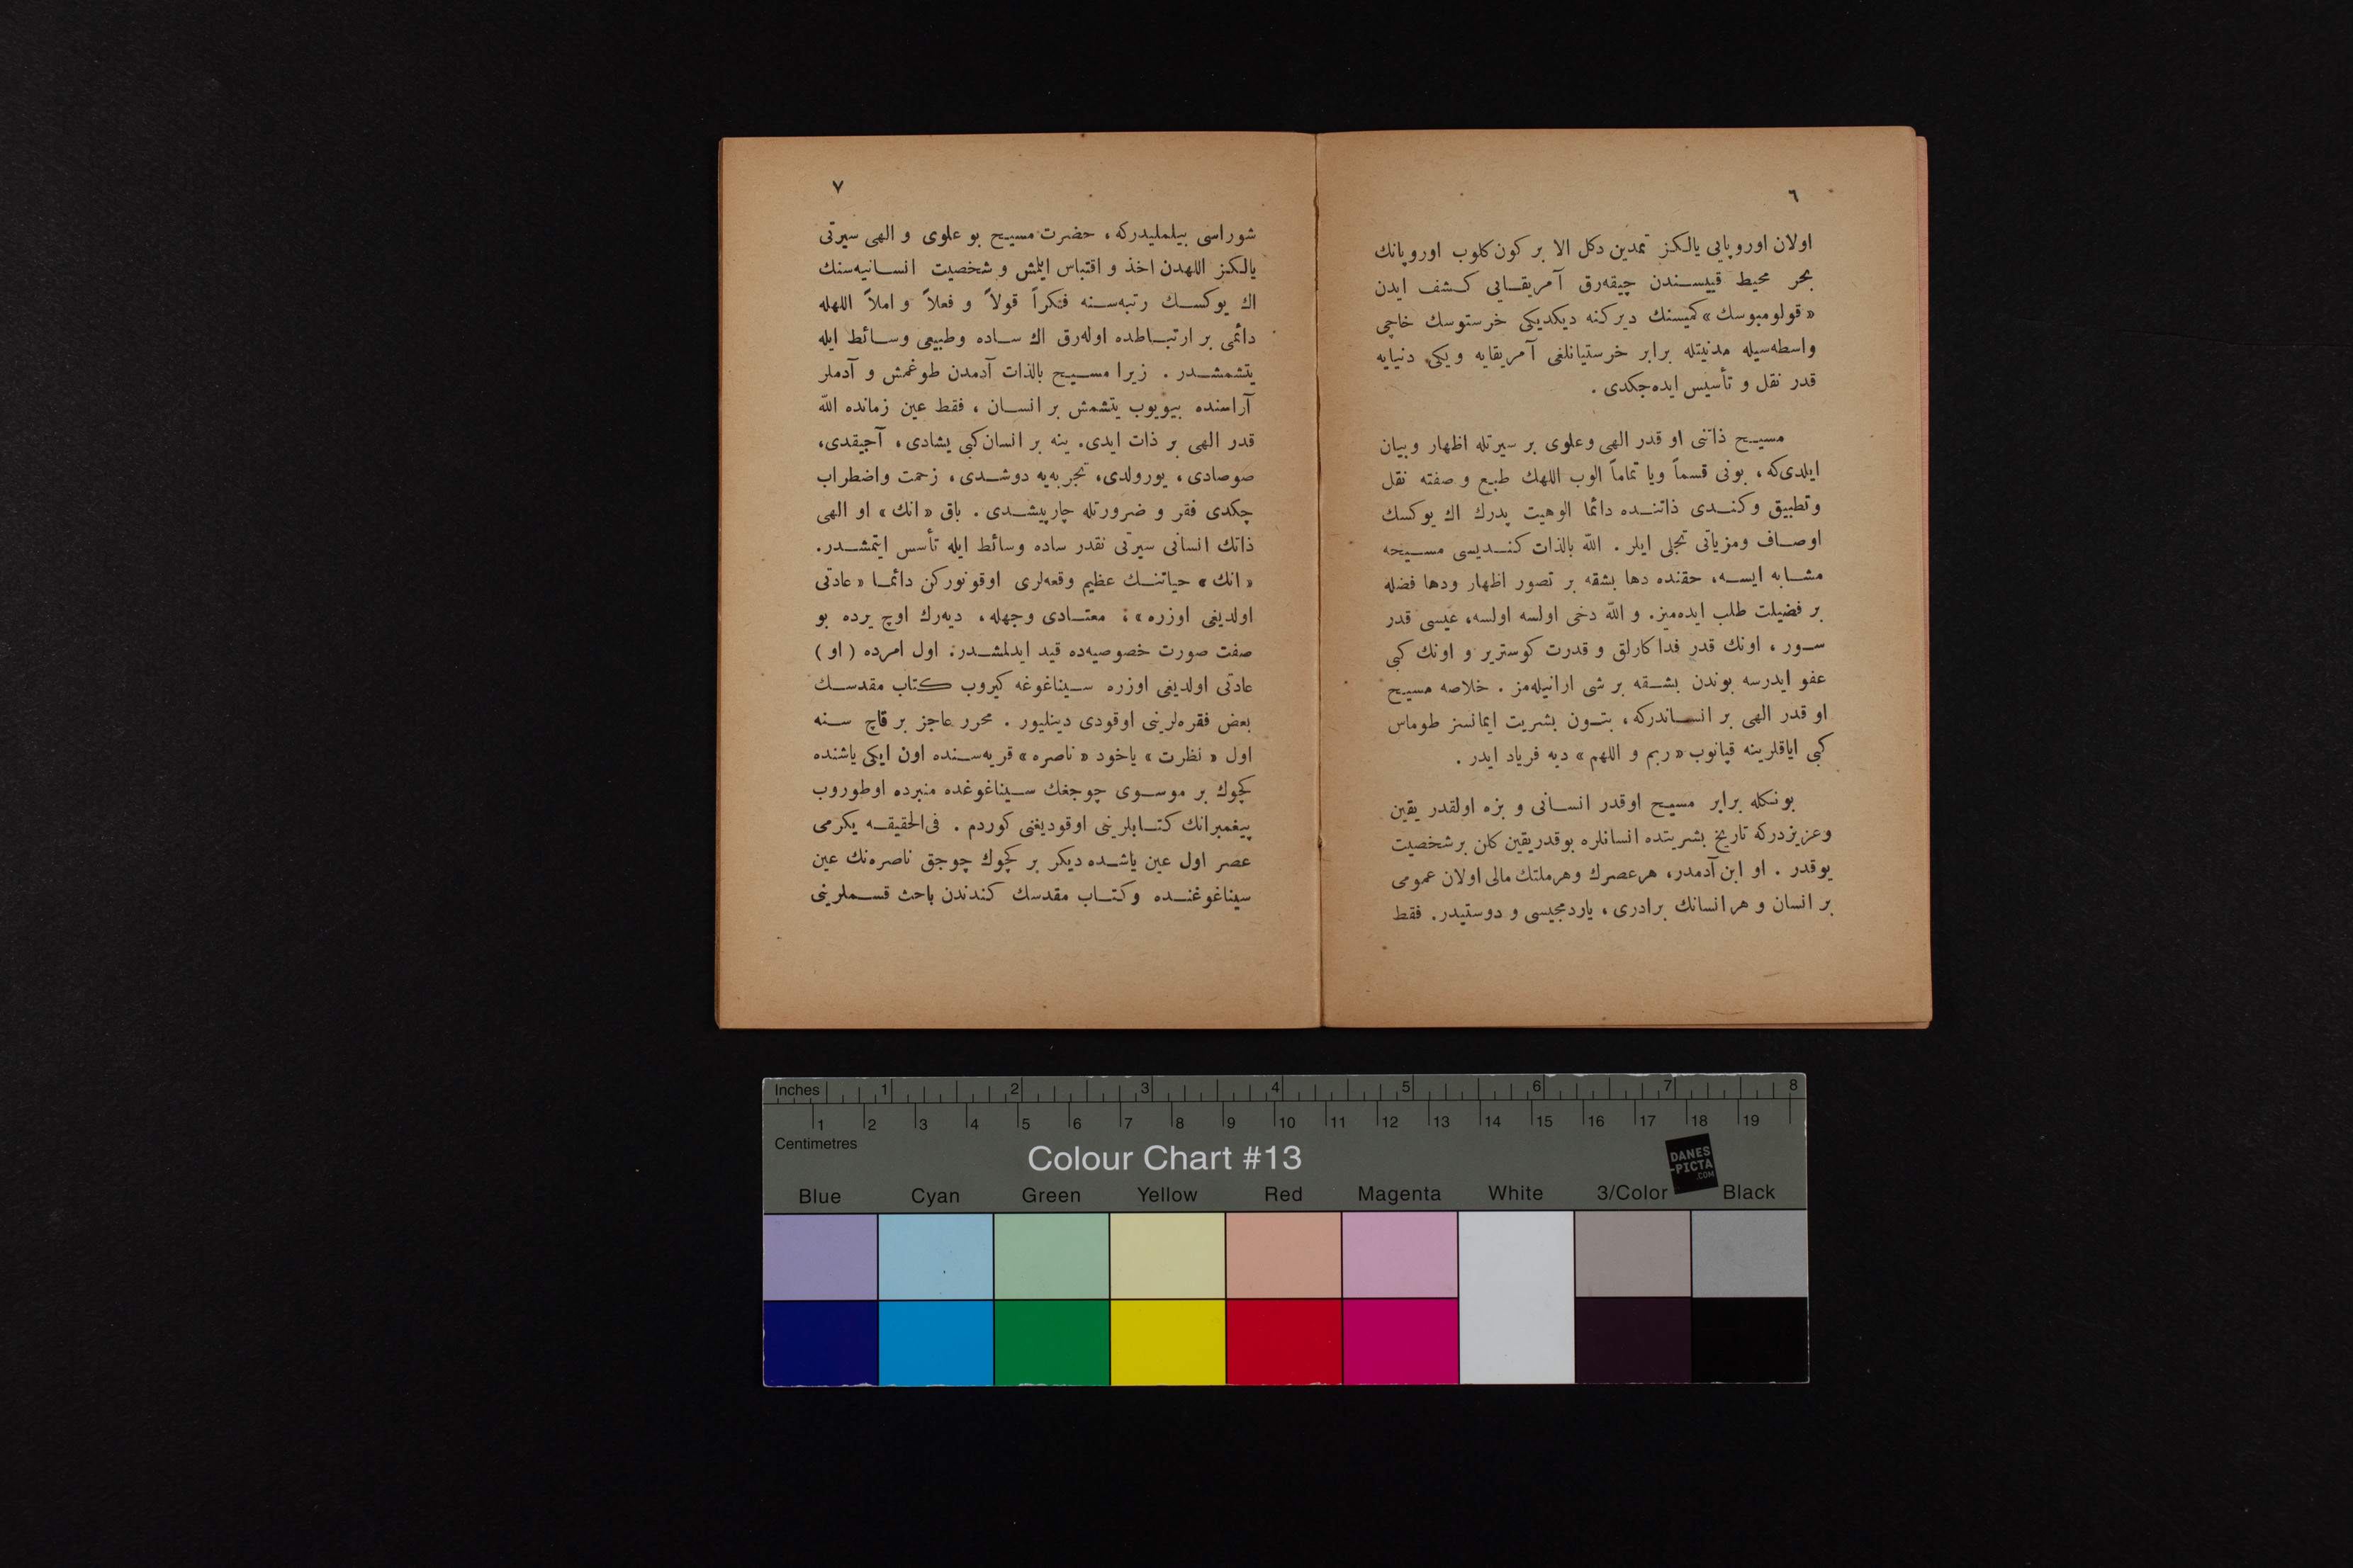 ٦
اولان اوروپایی یالكز تمدین دكل الا بر كون كلوب اوروپانك
بحر محیط قییسندن چیقه‌رق آمریقایی كشف ایدن
«قولومبوسك» كمیسنك دیركنه دیكدیكی خرستوسك خاچی
واسطه‌سیله مدنیتله برابر خرستیانلغی آمریقایه ویكی دنیایه
قدر نقل و تأسیس ایده‌جكدی .
مسیح ذاتنی او قدر الهی وعلوی بر سیرتله اظهار وبیان
ایلدی‌كه ، بونی قسماً ویا تماماً الوب اللهك طبع و صفته نقل
وتطبیق وكندی ذاتنده دائما الوهیت پدرك اك یوكسك
اوصاف ومزیاتی تجلی ایلر . الله بالذات كندیسی مسیحه
مشابه ایسه، حقنده دها بشقه بر تصور اظهار ودها فضله
بر فضیلت طلب ایده‌میز. و الله دخی اولسه اولسه، عیسی قدر
سور ، اونك قدر فداكارلق و قدرت كوستریر و اونك كبی
عفو ایدرسه بوندن بشقه بر شی ارانیله‌مز . خلاصه مسیح
او قدر الهی بر انساندركه ، بتون بشریت ایمانسز طوماس
كبی ایاقلرینه قپانوب «ربم و اللهم» دیه فریاد ایدر .
بونكله برابر مسیح اوقدر انسانی و بزه اولقدر یقین
وعزیزدركه تاریخ بشریتده انسانلره بوقدریقین كلن برشخصیت
یوقدر . او ابن آدمدر، هرعصرك وهرملتك مالی اولان عمومی
بر انسان و هر انسانك برادری ، یاردمجیسی و دوستیدر. فقط
٧
شوراسی بیلملیدركه ، حضرت مسیح بو علوی و الهی سیرتی
یالكز اللهدن اخذ و اقتباس ایلمش و شخصیت انسانیه‌سنك
اك یوكسك رتبه‌سنه فكراً قولاً و فعلاً و املاً اللهله
دائمی بر ارتباطده اوله‌رق اك ساده وطبیعی وسائط ایله
یتشمشدر . زیرا مسیح بالذات آدمدن طوغمش و آدملر
آراسنده بیویوب یتشمش بر انسان ، فقط عین زمانده الله
قدر الهی بر ذات ایدی. ینه بر انسان كبی یشادی، آجیقدی،
صوصادی ، یورولدی، تجربه‌یه دوشدی ، زحمت واضطراب
چكدی فقر و ضرورتله چارپیشدی . باق «انك» او الهی
ذاتك انسانی سیرتی نقدر ساده وسائط ایله تأسس ایتمشدر.
«انك» حیاتنك عظیم وقعه‌لری اوقونوركن دائما «عادتی
اولدیغی اوزره» ؛ معتادی وجهله ، دیه‌رك اوچ یرده بو
صفت صورت خصوصیه‌ده قید ایدلمشدر: اول امرده ( او )
عادتی اولدیغی اوزره سیناغوغه كیروب كتاب مقدسك
بعض فقره‌لرینی اوقودی دینلیور . محرر عاجز بر قاچ سنه
اول «نظرت» یاخود «ناصره» قریه‌سنده اون ایكی یاشنده
كچوك بر موسوی چوجغك سیناغوغده منبرده اوطوروب
پیغمبرانك كتابلرینی اوقودیغنی كوردم . فی‌الحقیقه یكرمی
عصر اول عین یاشده دیكر بر كچوك چوجق ناصره‌نك عین
سیناغوغنده وكتاب مقدسك كندندن باحث قسملرینی
Inches 1 2 3 4 5 6 7 8
1 2 3 4 5 6 7 8 9 10 11 12 13 14 15 16 17 18 19
Centimetres
Colour Chart #13
DANES
-PICTA
.COM
Blue Cyan Green Yellow Red Magenta White 3/Color Black